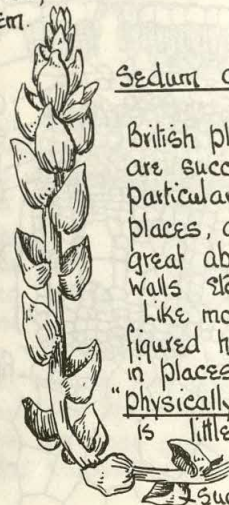 em.
Sedum a
British pl
are succ
particular
places, a
great ab
walls
Like mo
figured h
in places
"physically
is little
Suc